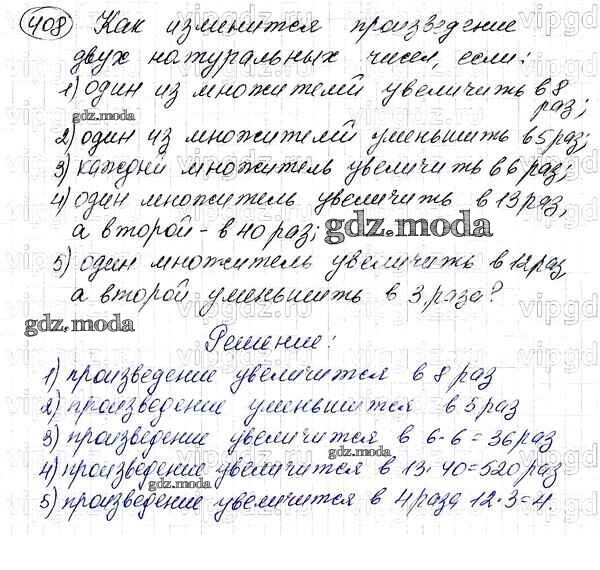 408 Как изменится произведение
двух натуральных чисел, если:
1) один из множителей увеличить в 8
раз;
gdz.moda
2) один из множителей уменьшить в 5 раз;
3) каждый множитель увеличить в 6 раз;
4) один множитель увеличить в 13 раз,
а второй - в 40 раз;
gdz.moda
5) один множитель увеличить в 12 раз
а второй уменьшить в 3 раза?
gdz.moda
Решение:
1) произведение увеличится в 8 раз
2) произведение уменьшится в 5 раз
3) произведение увеличится в 6·6=36 раз
gdz.moda
4) произведение увеличится в 13·40=520 раз
gdz.moda
5) произведение увеличится в 4 раза 12:3=4.